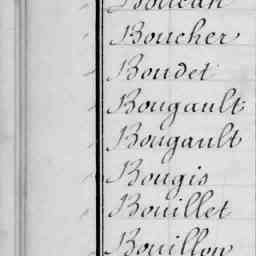 Boucan
Boucher
Boudet
Bougault
Bougault
Bougis
Bouillet
Bouillon